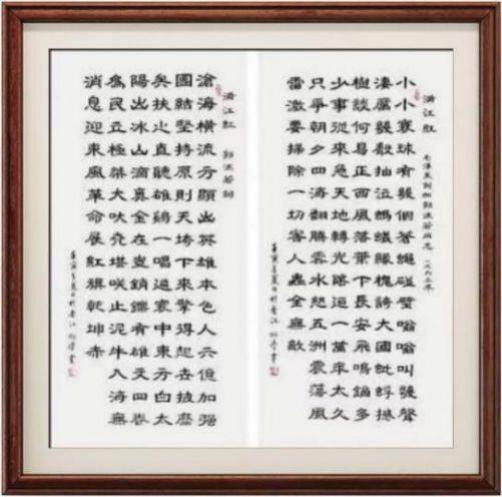 滿江紅
毛澤東詞和郭沫若同志 一九六三年
小小寰球有幾個蒼蠅碰壁嗡嗡叫幾聲
淒厲幾聲抽泣螞蟻緣槐誇大國蚍蜉撼
樹談何易正西風落葉下長安飛鳴鏑多
少事從來急天地轉光陰迫一萬年太久
只爭朝夕四海翻騰雲水怒五洲震蕩風
雷激要掃除一切害人蟲全無敵
壬寅年夏日於香江 書
滿江紅 郭沫若詞
滄海橫流方顯出英雄本色人六億加強
團結堅持原則天垮下來擎得起世披靡
矣扶之直聽雄雞一唱遍寰中東方白太
陽出冰山滴真金在豈銷鑠有雄文四卷
為民立極桀犬吠堯堪笑止泥牛入海無
消息迎東風革命展紅旗乾坤赤
壬寅年夏日於香江 書